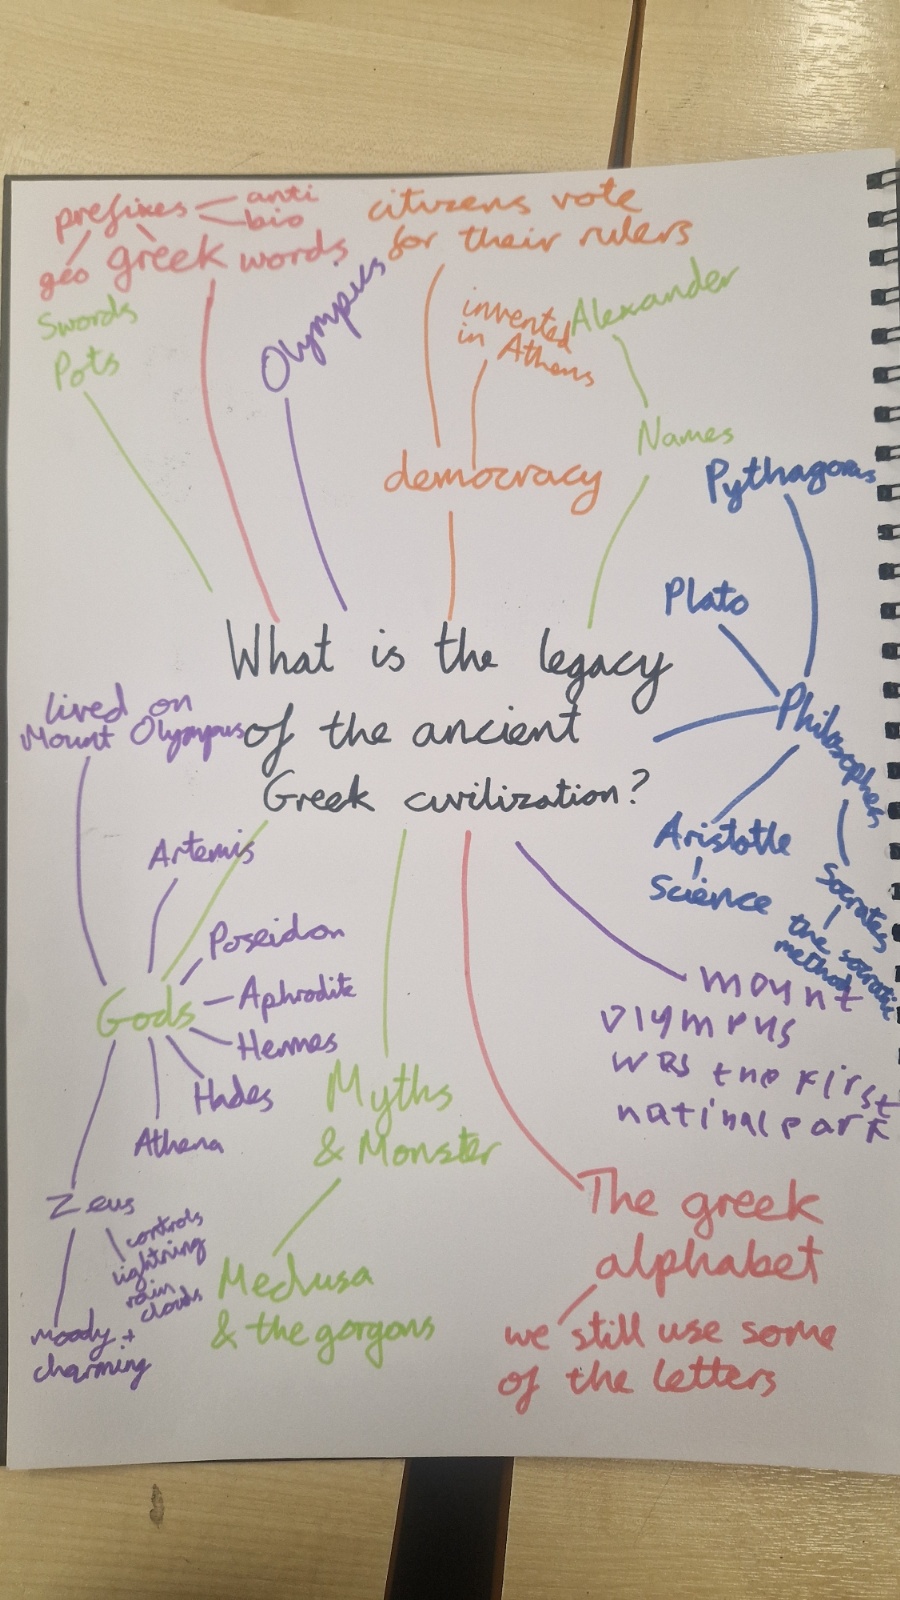 prefixes
anti
bio
geo
greek words
citizens vote
for their rulers
Swords
Pots
Olympics
invented
in Athens
Alexander
democracy
Names
Pythagoras
Plato
What is the legacy
of the ancient
Greek civilization?
Philosophers
Aristotle
Science
Socrates
the socratic
method
lived on
Mount Olympus
Artemis
Poseidon
Aphrodite
Gods
Hermes
Hades
Athena
Zeus
controls
lightning
rain
clouds
moody +
charming
Myths
& Monster
Medusa
& the gorgons
mount
Olympus
was the first
natinal park
The greek
alphabet
we still use some
of the letters